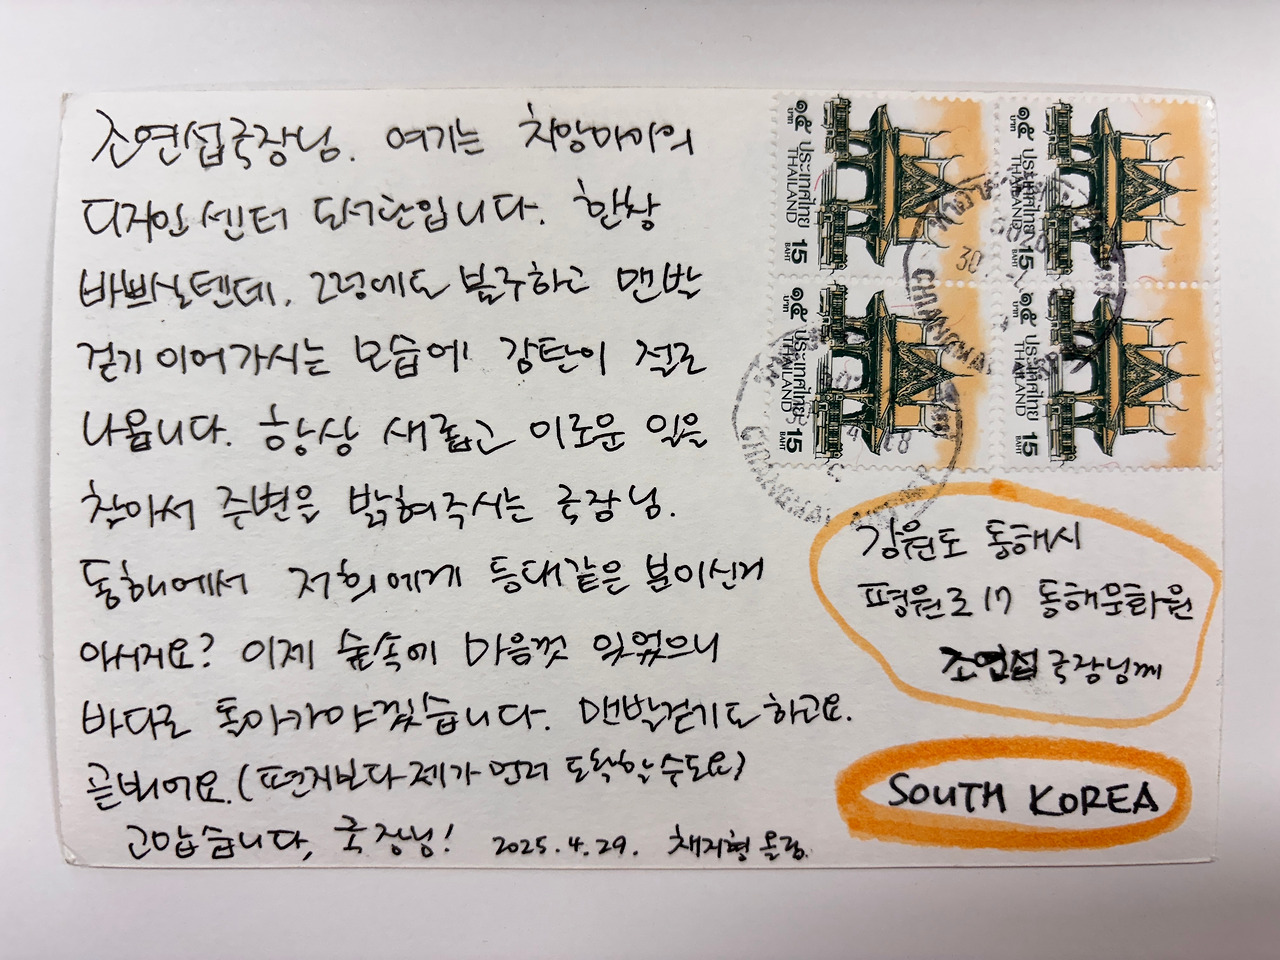 조연섭국장님. 여기는 치앙마이의
디자인 센터 도서관입니다. 한창
바쁘실텐데. 그럼에도 불구하고 맨발
걷기 이어가시는 모습에 감탄이 절로
나옵니다. 항상 새롭고 이로운 일을
찾아서 주변을 밝혀주시는 국장님.
동해에서 저희에게 등대같은 분이신거
아시지요? 이제 숲속에 마음껏 있었으니
바다로 돌아가야겠습니다. 맨발걷기도 하고요.
곧봬어요. (편지보다 제가 먼저 도착할 수도요)
고맙습니다, 국장님! 2025.4.29. 채지형 올림.
๑๕ บาท ประเทศไทย THAILAND 15 BAHT
๑๕ บาท ประเทศไทย THAILAND 15 BAHT
๑๕ บาท ประเทศไทย THAILAND 15 BAHT
๑๕ บาท ประเทศไทย THAILAND 15 BAHT
CHIANGMAI
CHIANGMAI
강원도 동해시
평원로 17 동해문화원
조연섭 국장님께
SOUTH KOREA